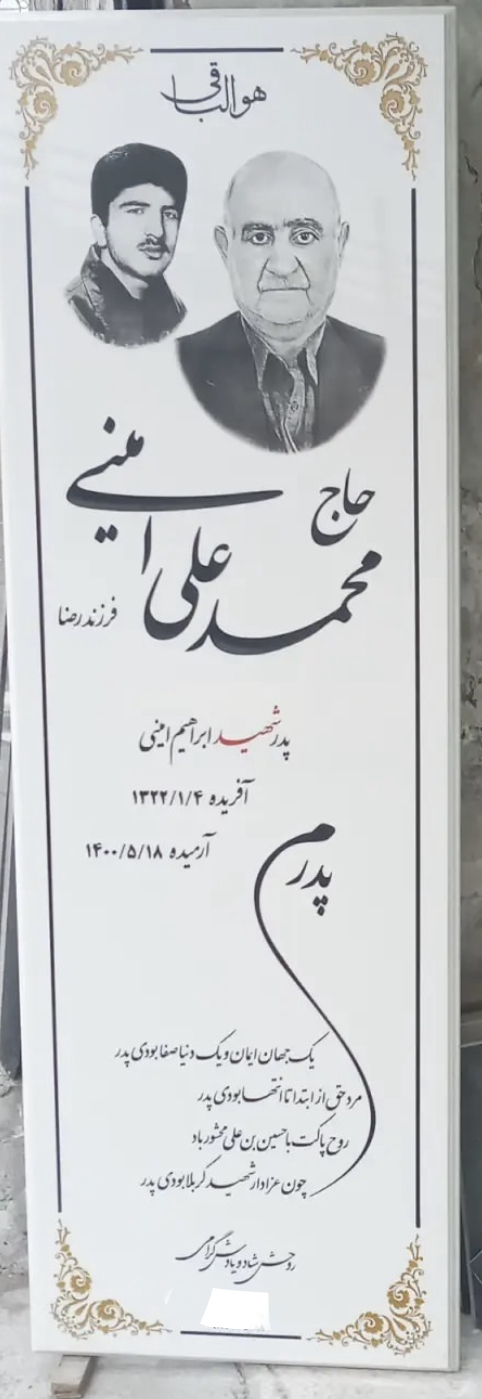 هوالباقی
حاج
محمد علی امینی
فرزند رضا
پدر شهید ابراهیم امینی
آفریده ۱۳۲۲/۱/۴
آرمیده ۱۴۰۰/۵/۱۸
پدرم
یک جهان ایمان و یک دنیا صفا بودی پدر
مرد حق از ابتدا تا انتها بودی پدر
روح پاکت با حسین بن علی محشور باد
چون عزادار شهید کربلا بودی پدر
روحش شاد و یادش گرامی